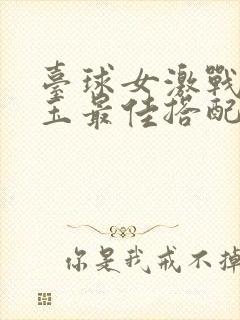 臺球女激戰
玉最佳搭配
你是我戒不掉